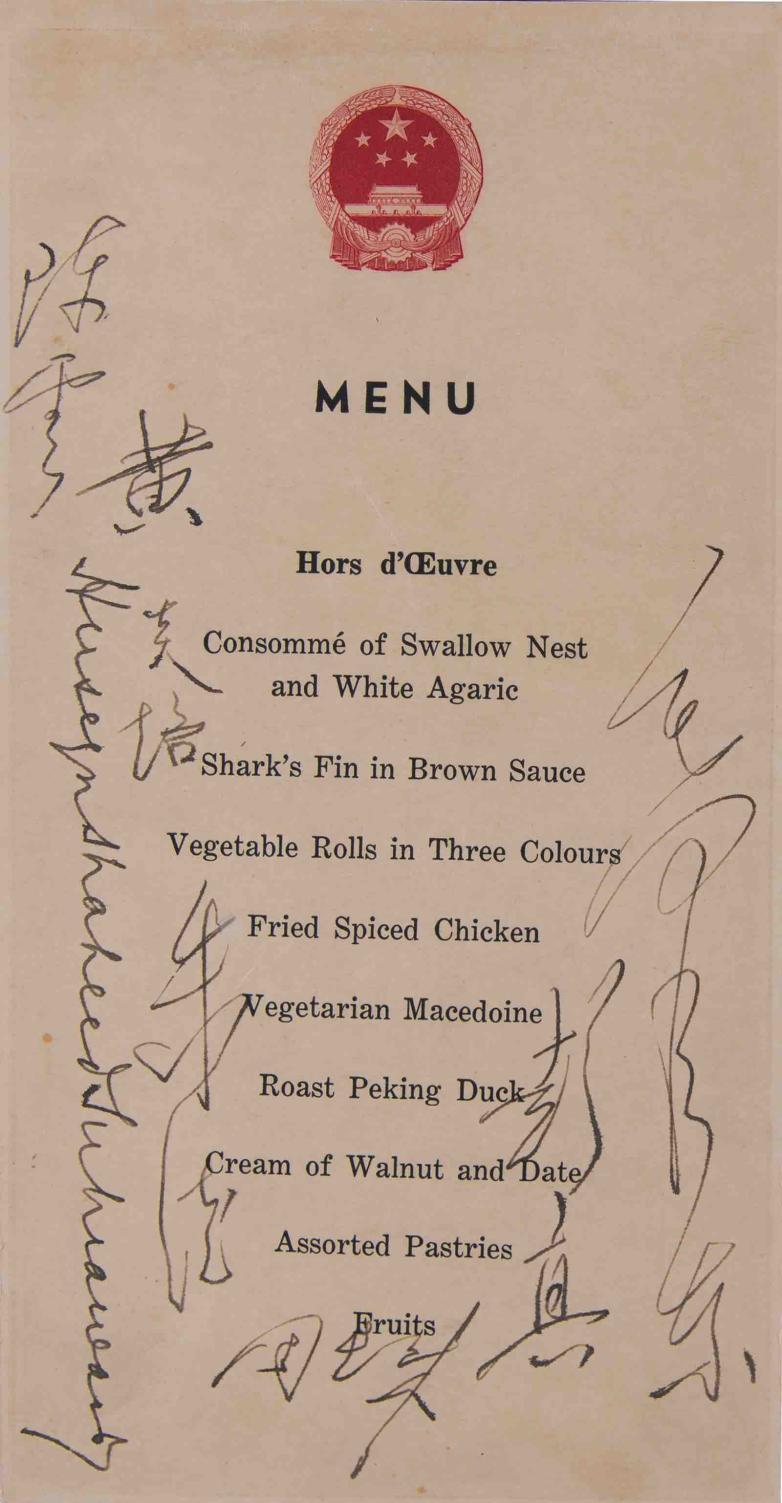 MENU
Hors d'Œuvre
Consommé of Swallow Nest
and White Agaric
Shark's Fin in Brown Sauce
Vegetable Rolls in Three Colours
Fried Spiced Chicken
Vegetarian Macedoine
Roast Peking Duck
Cream of Walnut and Date
Assorted Pastries
Fruits
Huseyn Shaheed Suhrawardy
毛泽东
彭真
周恩来
朱德
黄